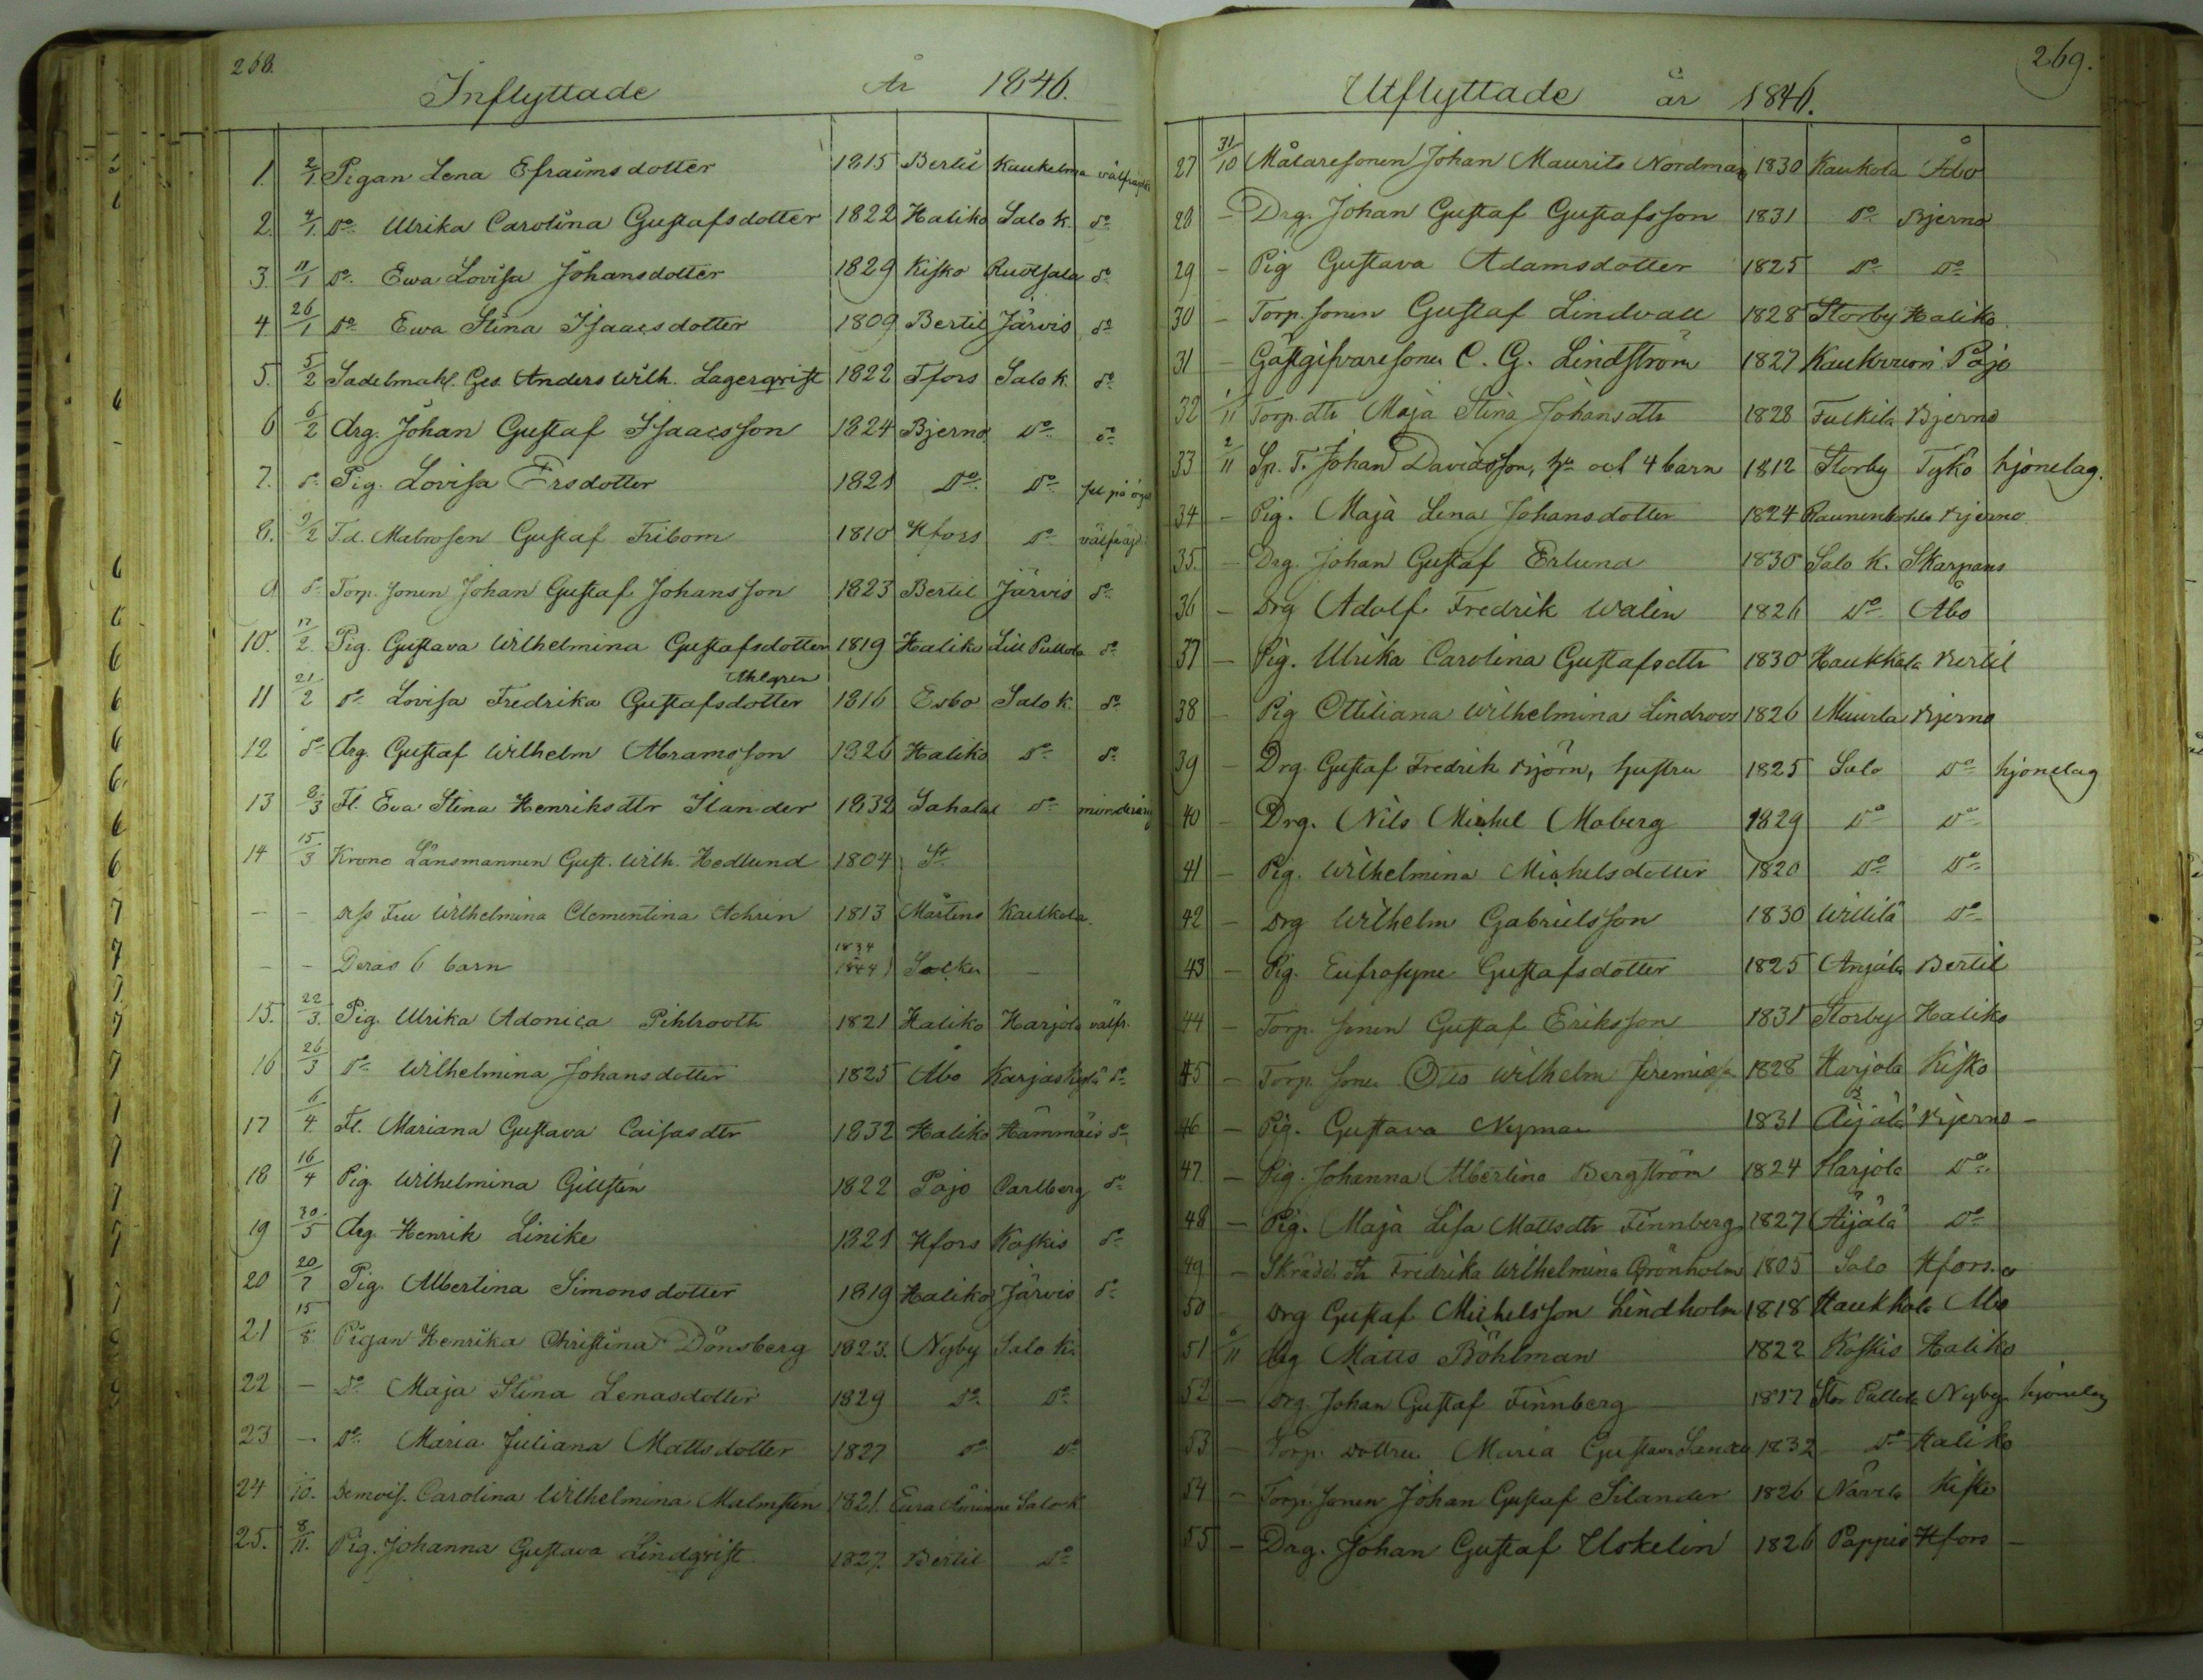 268.
Inflyttade År 1846.
1. 2/1 Pigan Lena Efraimsdotter 1815 Bertil Kaukelma välfräjdad
2. 4/1 Do Ulrika Carolina Gustafsdotter 1822 Haliko Salo K. do
3. 11/1 Do Ewa Lovisa Johansdotter 1829 Kisko Ruotsala do
4. 26/1 Do Ewa Stina Isaacsdotter 1809 Bertil Järvis do
5. 5/2 Sadelmak. Ges. Anders Wilh. Lagerqvist 1822 Tfors Salo K. do
6 6/2 drg. Johan Gustaf Isaacsson 1824 Bjerno Do do
7. do Pig. Lovisa Ersdotter 1821 Do Do
8. 9/2 F.d. Matrosen Gustaf Fribom 1810 Hfors Do välfräjd
9 do Torp. sonen Johan Gustaf Johansson 1823 Bertil Järvis do
10. 17/2 Pig. Gustava Wilhelmina Gustafsdotter 1819 Haliko Lill Pullola do
Uhlgren
11 21/2 do Lovisa Fredrika Gustafsdotter 1816 Esbo Salo K. do
12 do drg. Gustaf Wilhelm Abramsson 1826 Haliko Do do
13 8/3 Fl. Eva Stina Henriksdtr Ilander 1832 Sahalax Do minderårig
14 15/3 Krono Länsmannen Gust. Wilh. Hedlund 1804 St
- - dess Fru Wilhelmina Clementina Achrén 1813 Mårtens Kaukola.
- - Deras 6 barn 1834 1844 Socken -
15. 22/3. Pig. Ulrika Adonica Pihlrooth 1821 Haliko Harjola välfr.
16 26/3 do Wilhelmina Johansdotter 1825 Åbo Karjaskylä do
17 6/4 Fl. Mariana Gustava Caisasdtr 1832 Haliko Hämmäis do
18 16/4 Pig. Wilhelmina Gillstén 1822 Pojo Carlberg do
19 30/5 drg. Henrik Linike 1821 Hfors Koskis do
20 20/7 Pig. Albertina Simonsdotter 1819 Haliko Järvis do
21 15/8 Pigan Henrika Christina Dönsberg 1823. Nyby Salo K.
22 - Do Maja Stina Lenasdotter 1829 Do Do
23 - Do Maria Juliana Mattsdotter 1827 Do Do
24 /10. Demois. Carolina Wilhelmina Malmstén 1821. Eura Salo K
25. 8/11. Pig. Johanna Gustava Lindqvist 1827. Bertil Do
269.
Utflyttade år 1846.
27 31/10 Målaresonen Johan Maurits Nordman 1830 Kaukola Åbo
28 - Drg. Johan Gustaf Gustafsson 1831 Do Bjerno
29 - Pig Gustava Adamsdotter 1825 Do Do
30 - Torp. sonen Gustaf Lindvall 1828 Storby Haliko.
31 - Gästgifvaresonen C. G. Lindström 1827 Kaukvuori Pojo
32 1/11 Torp. dtr Maja Stina Johansdtr 1828 Fulkila Bjerno
33 2/11 Sp. T. Johan Davidsson, hu och 4 barn 1812 Storby Tykö hjonelag.
34 - Pig. Maja Lena Johansdotter 1824 Bjerno
35. - Drg. Johan Gustaf Erlund 1830 Salo K. Skarpans
36 - Drg Adolf Fredrik Walin 1826 Do Åbo
37 - Pig. Ulrika Carolina Gustafsdtr 1830 Haukkala Bertil
38 - Pig Ottiliana Wilhelmina Lindroos 1826 Muurla Bjerno
39 - Drg. Gustaf Fredrik Björn, hustru 1825 Salo Do hjonelag
40 - Drg. Nils Michel Moberg 1829 Do Do
41 - Pig. Wilhelmina Michelsdotter 1820 Do Do
42 - Drg Wilhelm Gabrielsson 1830 Willilä Do
43 - Pig. Eufrosyne Gustafsdotter 1825 Anjala Bertil
44 - Torp. sonen Gustaf Eriksson 1831 Storby Haliko
45 - Torp. sonen Otto Wilhelm Jeremiass 1828 Harjola Kisko
46 - Pig. Gustava Nyman 1831 Äijälä Bjerno -
47. - Pig. Johanna Albertina Bergström 1824 Harjola Do
48 - Pig. Maja Lisa Mattsdtr Finnberg 1827 Äijälä Do
49 - Skrädd. dtr Fredrika Wilhelmina Grönholm 1805 Salo Hfors.
50 - Drg Gustaf Michelsson Lindholm 1818 Haukkala Åbo
51 6/11 drg Matts Böhlman 1822 Koskis Haliko
52 - Drg. Johan Gustaf Finnberg 1817 Stor Pullola Nyby hjonelag
53 - Torp. dottren Maria Gustava 1832 Do Haliko
54 - Torp. sonen Johan Gustaf Silander 1826 Kisko
55 - Drg. Johan Gustaf Uskelin 1826 Pappis Hfors -